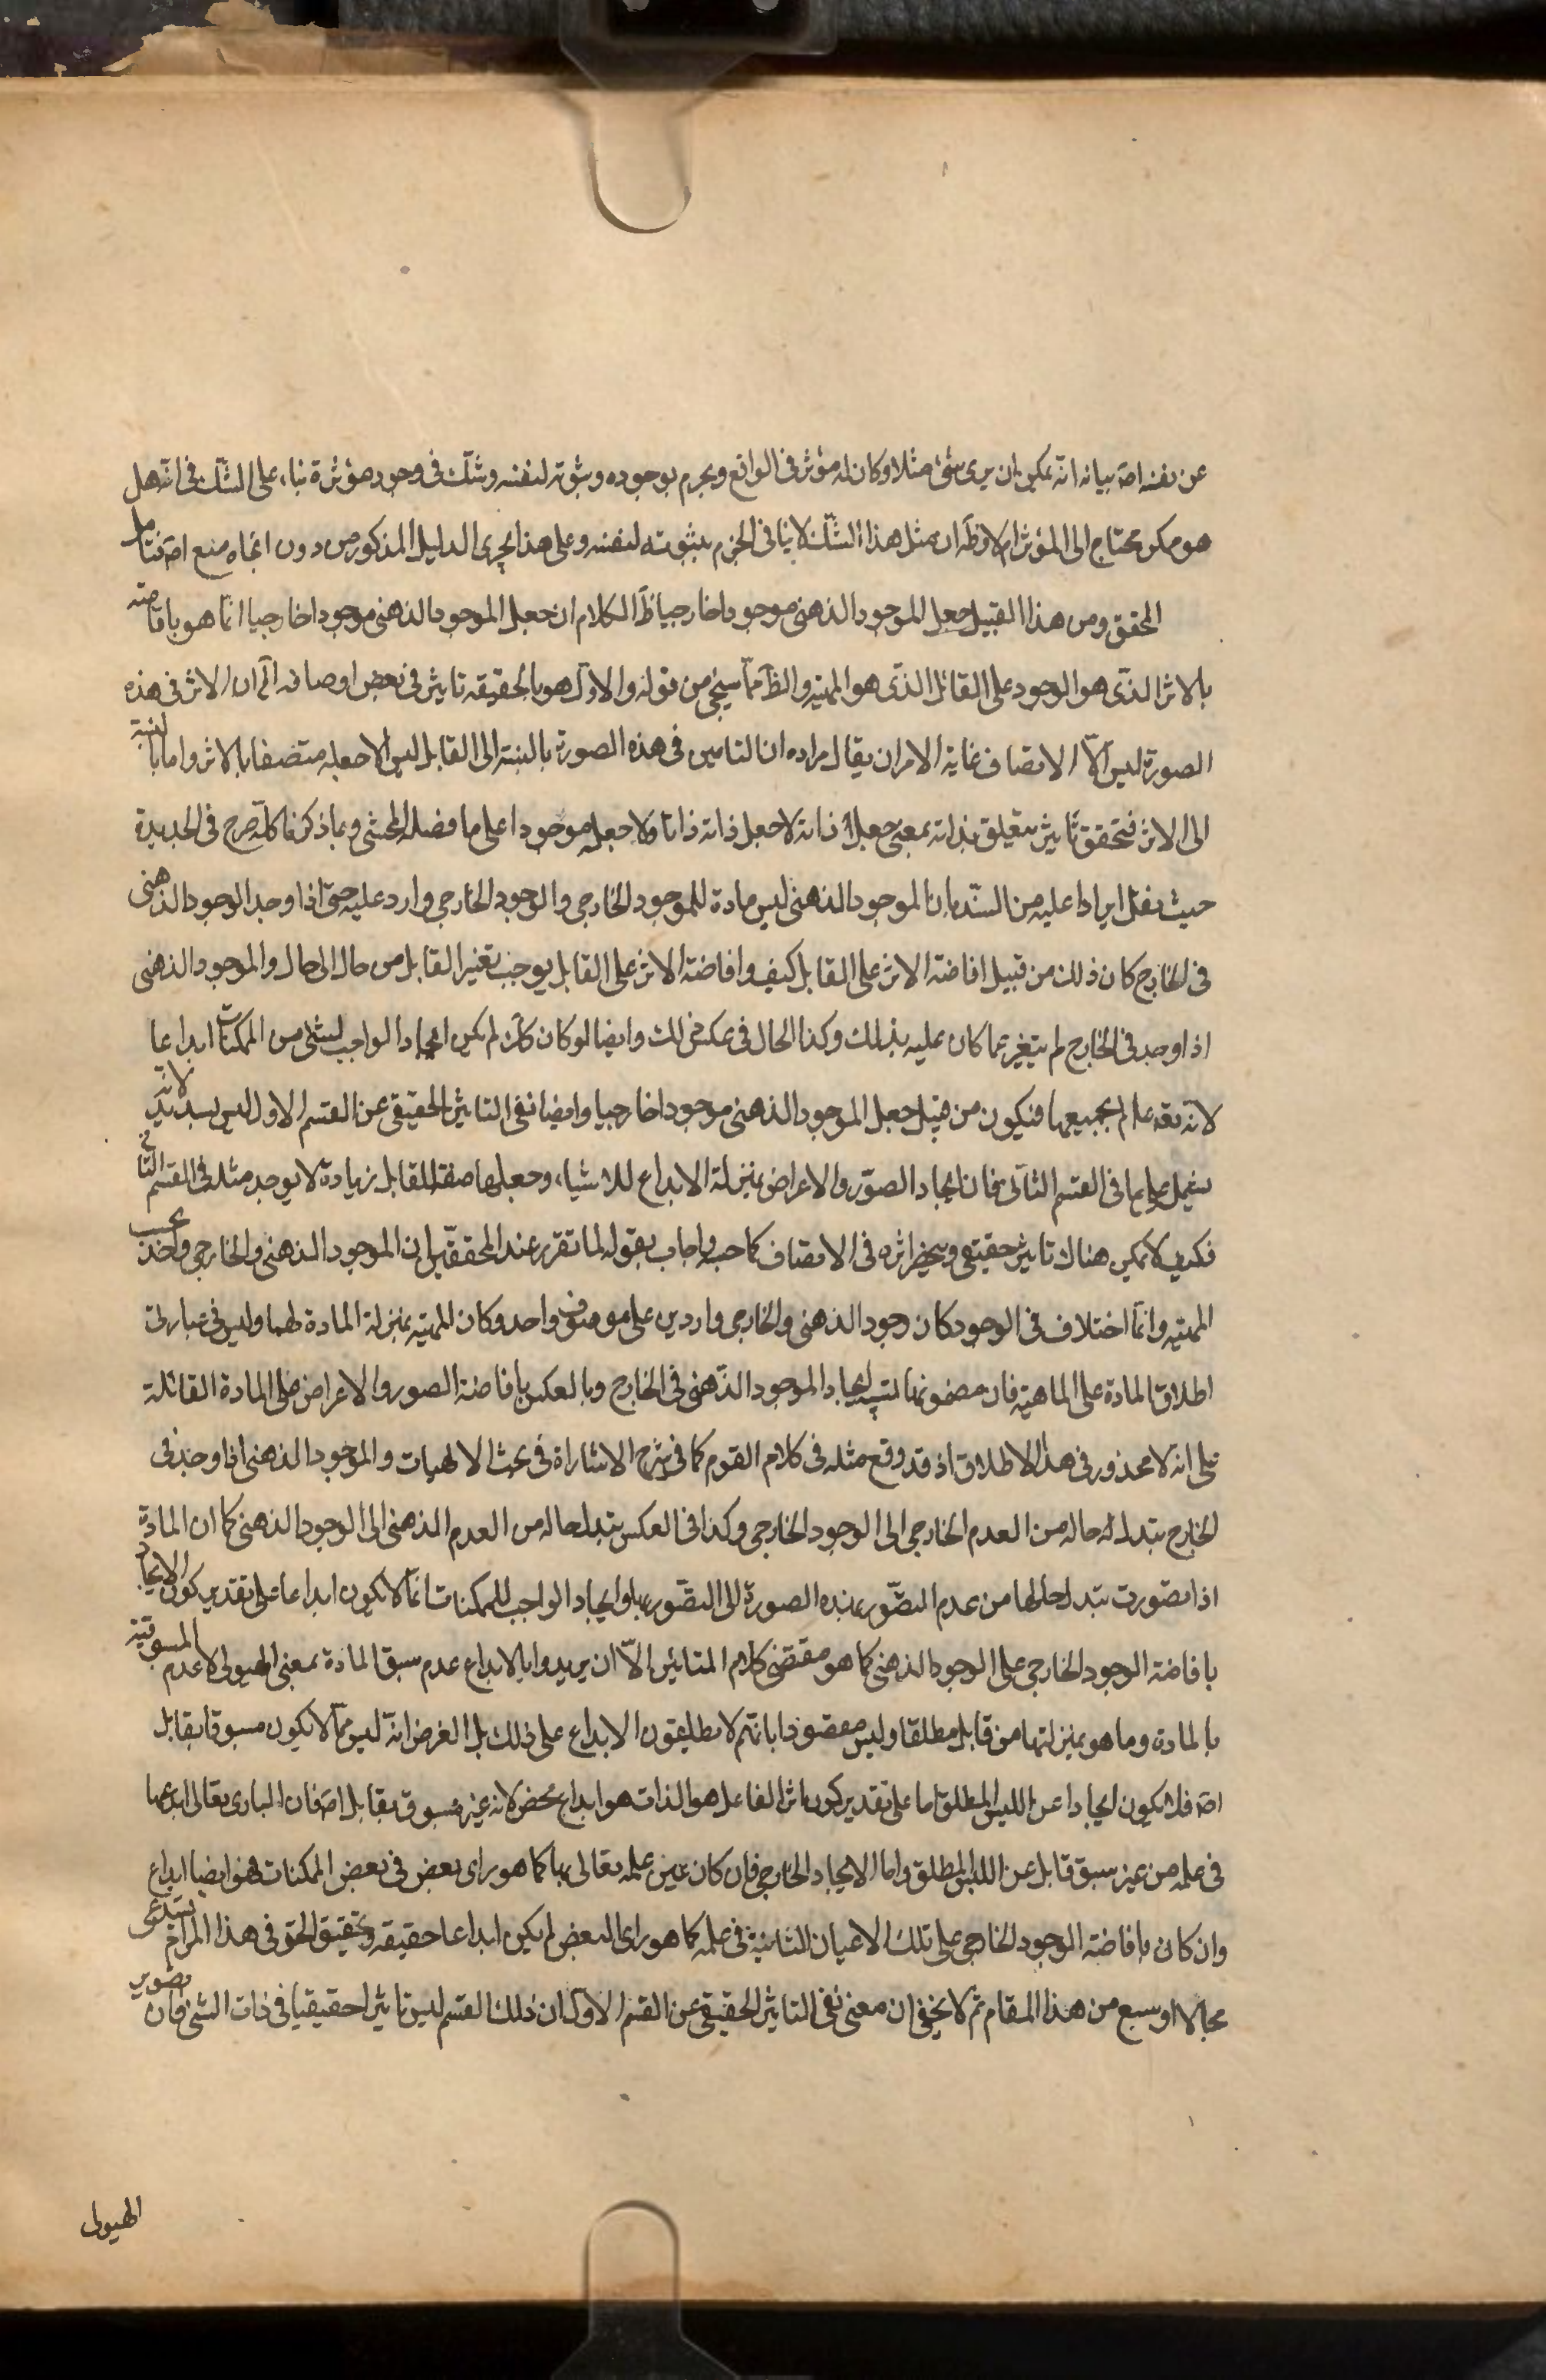 عن نفسه اصه بيانه انّه يمكن ان يرى شئ مثلا وكان له مؤثر فى الواقع ويجزم بوجوده وثبوته لنفسه وشكّ فى وجود مؤثره بناء على الشكّ فى انّه هل
هو ممكن محتاج الى المؤثر ام لا وظّه ان مثل هذا الشكّ لا ينافى الجزم بثبوته لنفسه وعلى هذا يجرى الدليل المذكور من دون اتجاه منع اصه فتأمل
المحقق ومن هذا القبيل جعل الموجود الذهنى موجودا خارجيا ظّ الكلام ان جعل الموجود الذهنى موجودا خارجيا انّما هو بافاضته
بالاثر الذّى هو الوجود على القابل الذّى هو المهية والظّ ممّا سيجئ من قوله والاوّل هو بالحقيقه تاثير فى بعض اوصافه آه ان الاثر فى هذه
الصورة ليس الّا الاتصاف غاية الامر ان يقال مراده ان التاثير فى هذه الصورة بالنسبة الى القابل ليس الا جعله متصفا بالاثر واما بالنسبة
الى الاثر فتحقق تاثير يتعلق بذاته بمعنى جعل ذاته لا جعل ذاته ذاتا ولا جعله موجودا على ما فصله المحشى وبما ذكرنا كلّه صرح فى الجديدة
حيث نقل ايرادا عليه من السيّد بان الموجود الذهنى ليس مادة للموجود الخارجى والوجود الخارجى وارد عليه حتى اذا وجد الوجود الذهنى
فى الخارج كان ذلك من قبيل افاضة الاثر على القابل كيف وافاضة الاثر على القابل يوجب تغير القابل من حال الى حال والموجود الذهنى
اذا وجد فى الخارج لم يتغير عما كان عليه بذلك وكذا الحال فى عكس ذلك وايضا لو كان كك لم يكن ايجاد الواجب لشئ من الممكنات ابداعا
لانّه تعه عالم بجميعها فيكون من قبيل جعل الموجود الذهنى موجودا خارجيا وايضا نفى التاثير الحقيقى عن القسم الاول ليس بسديد لانّه
يشمل على ما فى القسم الثانى فان ايجاد الصوّر والاعراض بمنزلة الابداع للاشياء وجعلها صفة للقابل زيادة لا يوجد مثله فى القسم الثانى
فكيف لا يكون هناك تاثير حقيقى وينحصر اثره فى الاتصاف كما حسب واجاب بقوله لما تقرر عند المحققين ان الموجود الذهنى والخارجى واحد بحسب
المهية وانّما اختلاف فى الوجود كان وجود الذهنى والخارجى واردين على موصوف واحد وكان المهية بمنزلة المادة لهما وليس فى عبارتى
اطلاق المادة على الماهية فان مضمونها تشبيه ايجاد الموجود الذّهنى فى الخارج وبالعكس بافاضة الصور والاعراض على المادة القابلة
على انه لا محذور فى هذا الاطلاق اذ قد وقع مثله فى كلام القوم كما فى شرح الاشارة فى بحث الالهيات والموجود الذهنى اذا وجد فى
الخارج يتبدل له حاله من العدم الخارجى الى الوجود الخارجى وكذا فى العكس يتبدل حاله من العدم الذهنى الى الوجود الذهنى كما ان المادة
اذا تصورت تتبدل حالها من عدم التصّور بهذه الصورة الى التصّور بها وايجاد الواجب للممكنات انّما لا يكون ابداعا على تقدير كون الايجاد
بافاضة الوجود الخارجى على الوجود الذهنى كما هو مقتضى كلام المتاخرين الّا ان يريدوا بالابداع عدم سبق المادة بمعنى الهيولى لا عدم المسبوقية
بالمادة وما هو بمنزلتها من قابل مطلقا وليس مقصودا بانّهم لا يطلقون الابداع على ذلك بل الغرض انّه ليس ممّا لا يكون مسبوقا بقابل
اصه فلا يكون ايجادا عن الليس المطلق اما على تقدير كون اثر الفاعل هو الذات هو ابداع محض لانه غير مسبوق بقابل اصه فان البارى تعالى ابدعها
فى علمه من غير سبق قابل عن الليس المطلق واما الايجاد الخارجى فان كان عين علمه تعالى بها كما هو راى بعض فى بعض الممكنات فهو ايضا ابداع
وان كان بافاضة الوجود الخارجى على تلك الاعيان الثابتة فى علمه كما هو راى البعض لم يكن ابداعا حقيقه وتحقيق الحق فى هذا المرام يستدعى
مجالا اوسع من هذا المقام ثم لا يخفى ان معنى نفى التاثير الحقيقى عن القسم الاول ان ذلك القسم ليس تاثيرا حقيقيا فى ذات الشئ فان تصوير
الهيولى